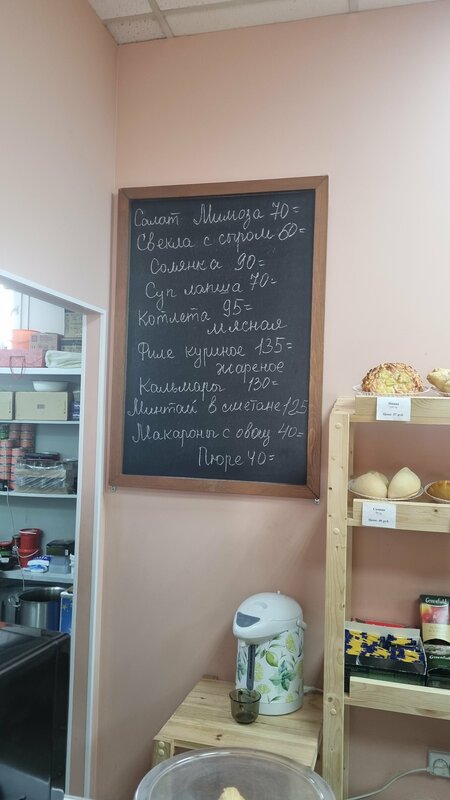 Салат Мимоза 70=
Свекла с сыром 60=
Солянка 90=
Суп лапша 70=
Котлета 95=
мясная
Филе куриное 135=
жареное
Кальмары 130=
Минтай в сметане 125
Макароны с овощ 40=
Пюре 40=
Greenfield